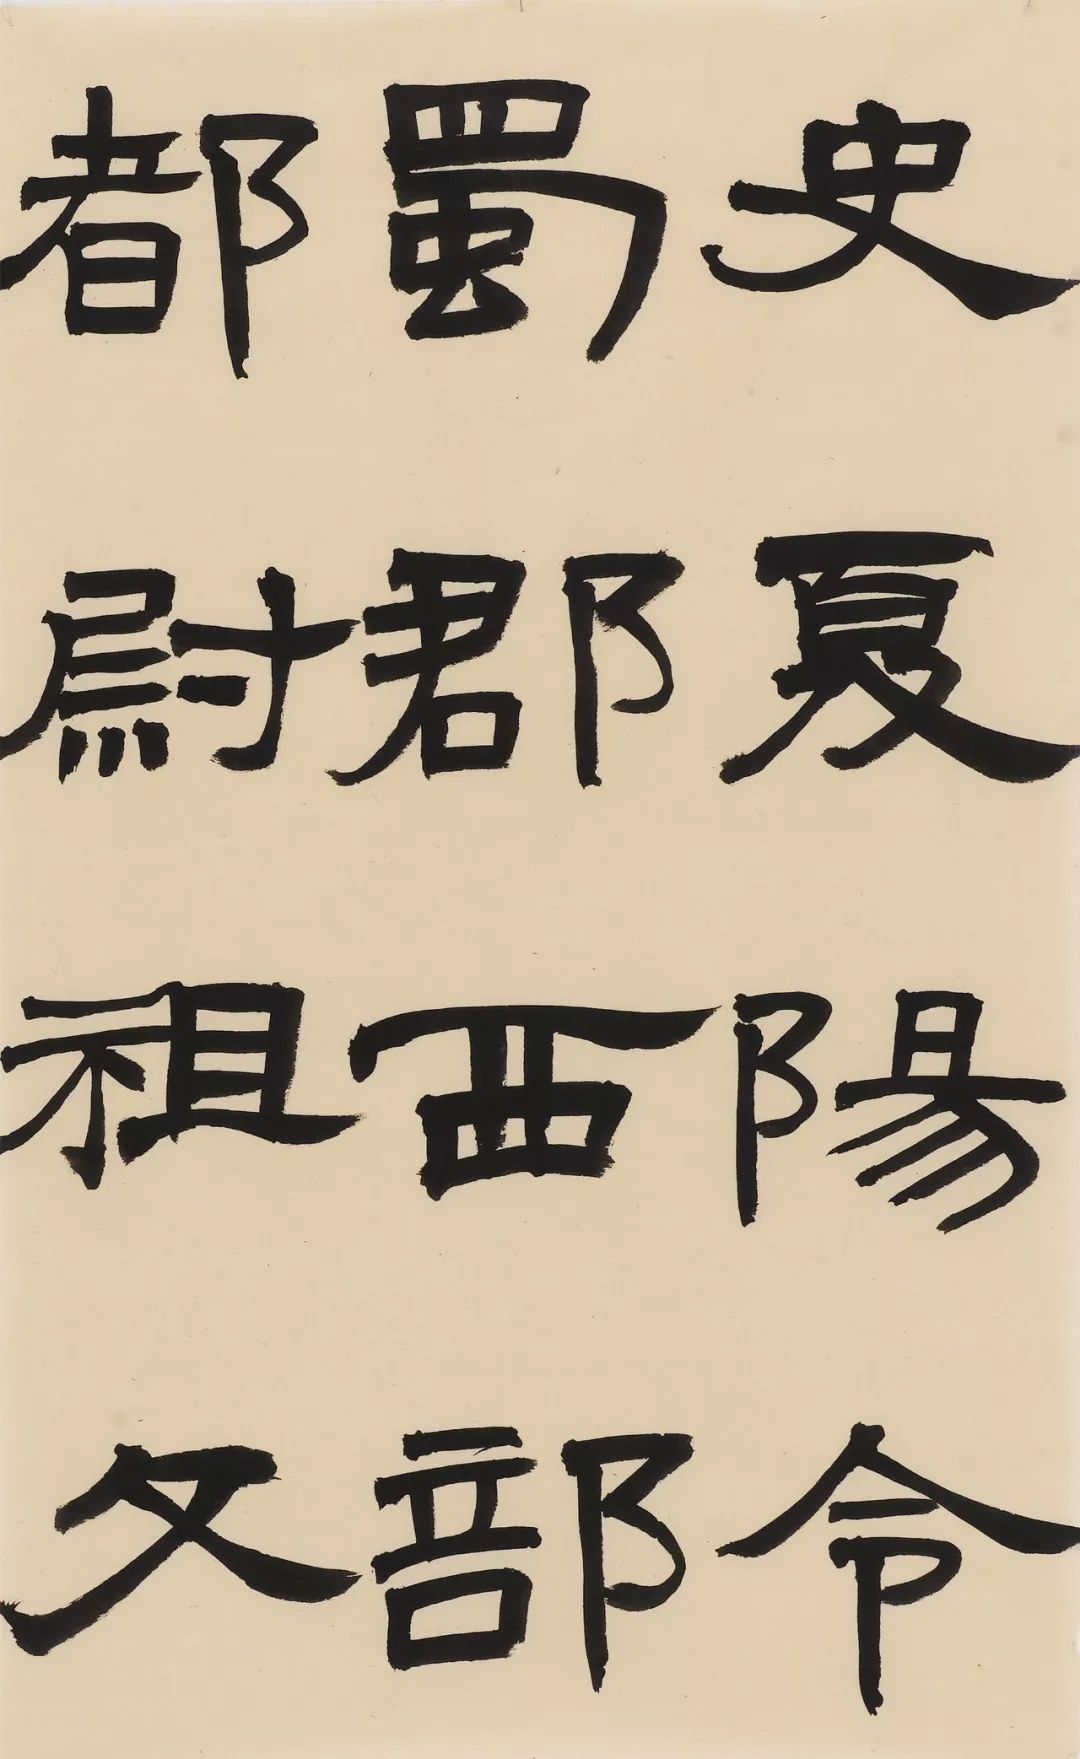 史夏陽令
蜀郡西部
都尉祖父